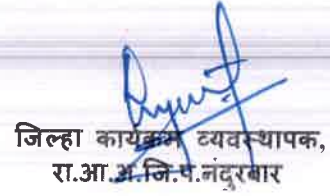 जिल्हा कार्यक्रम व्यवस्थापक,
रा.आ.अ.जि.प.नंदुरबार